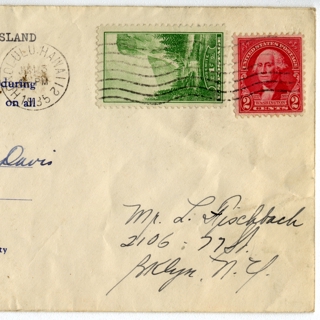 ISLAND
HONOLULU, HAWAII
during
on all
1¢
UNITED STATES POSTAGE
2 2
WASHINGTON
CENTS
Davis
Mr. L. Fischbach
2106 - 77 St.
Bklyn, N.Y.
ty